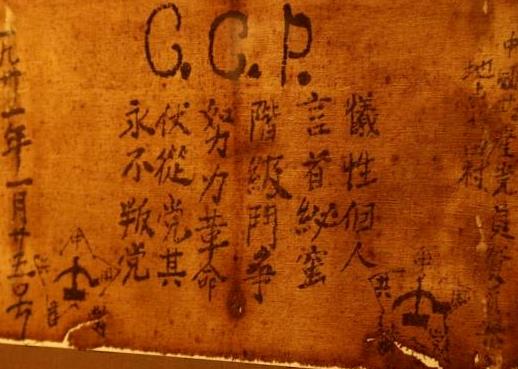 C.C.P.
中国共産党員
地点 田村
犧性個人
言首泌蜜
階級鬥爭
努力革命
伏從党其
永不叛党
一九卅一年一月廿五号